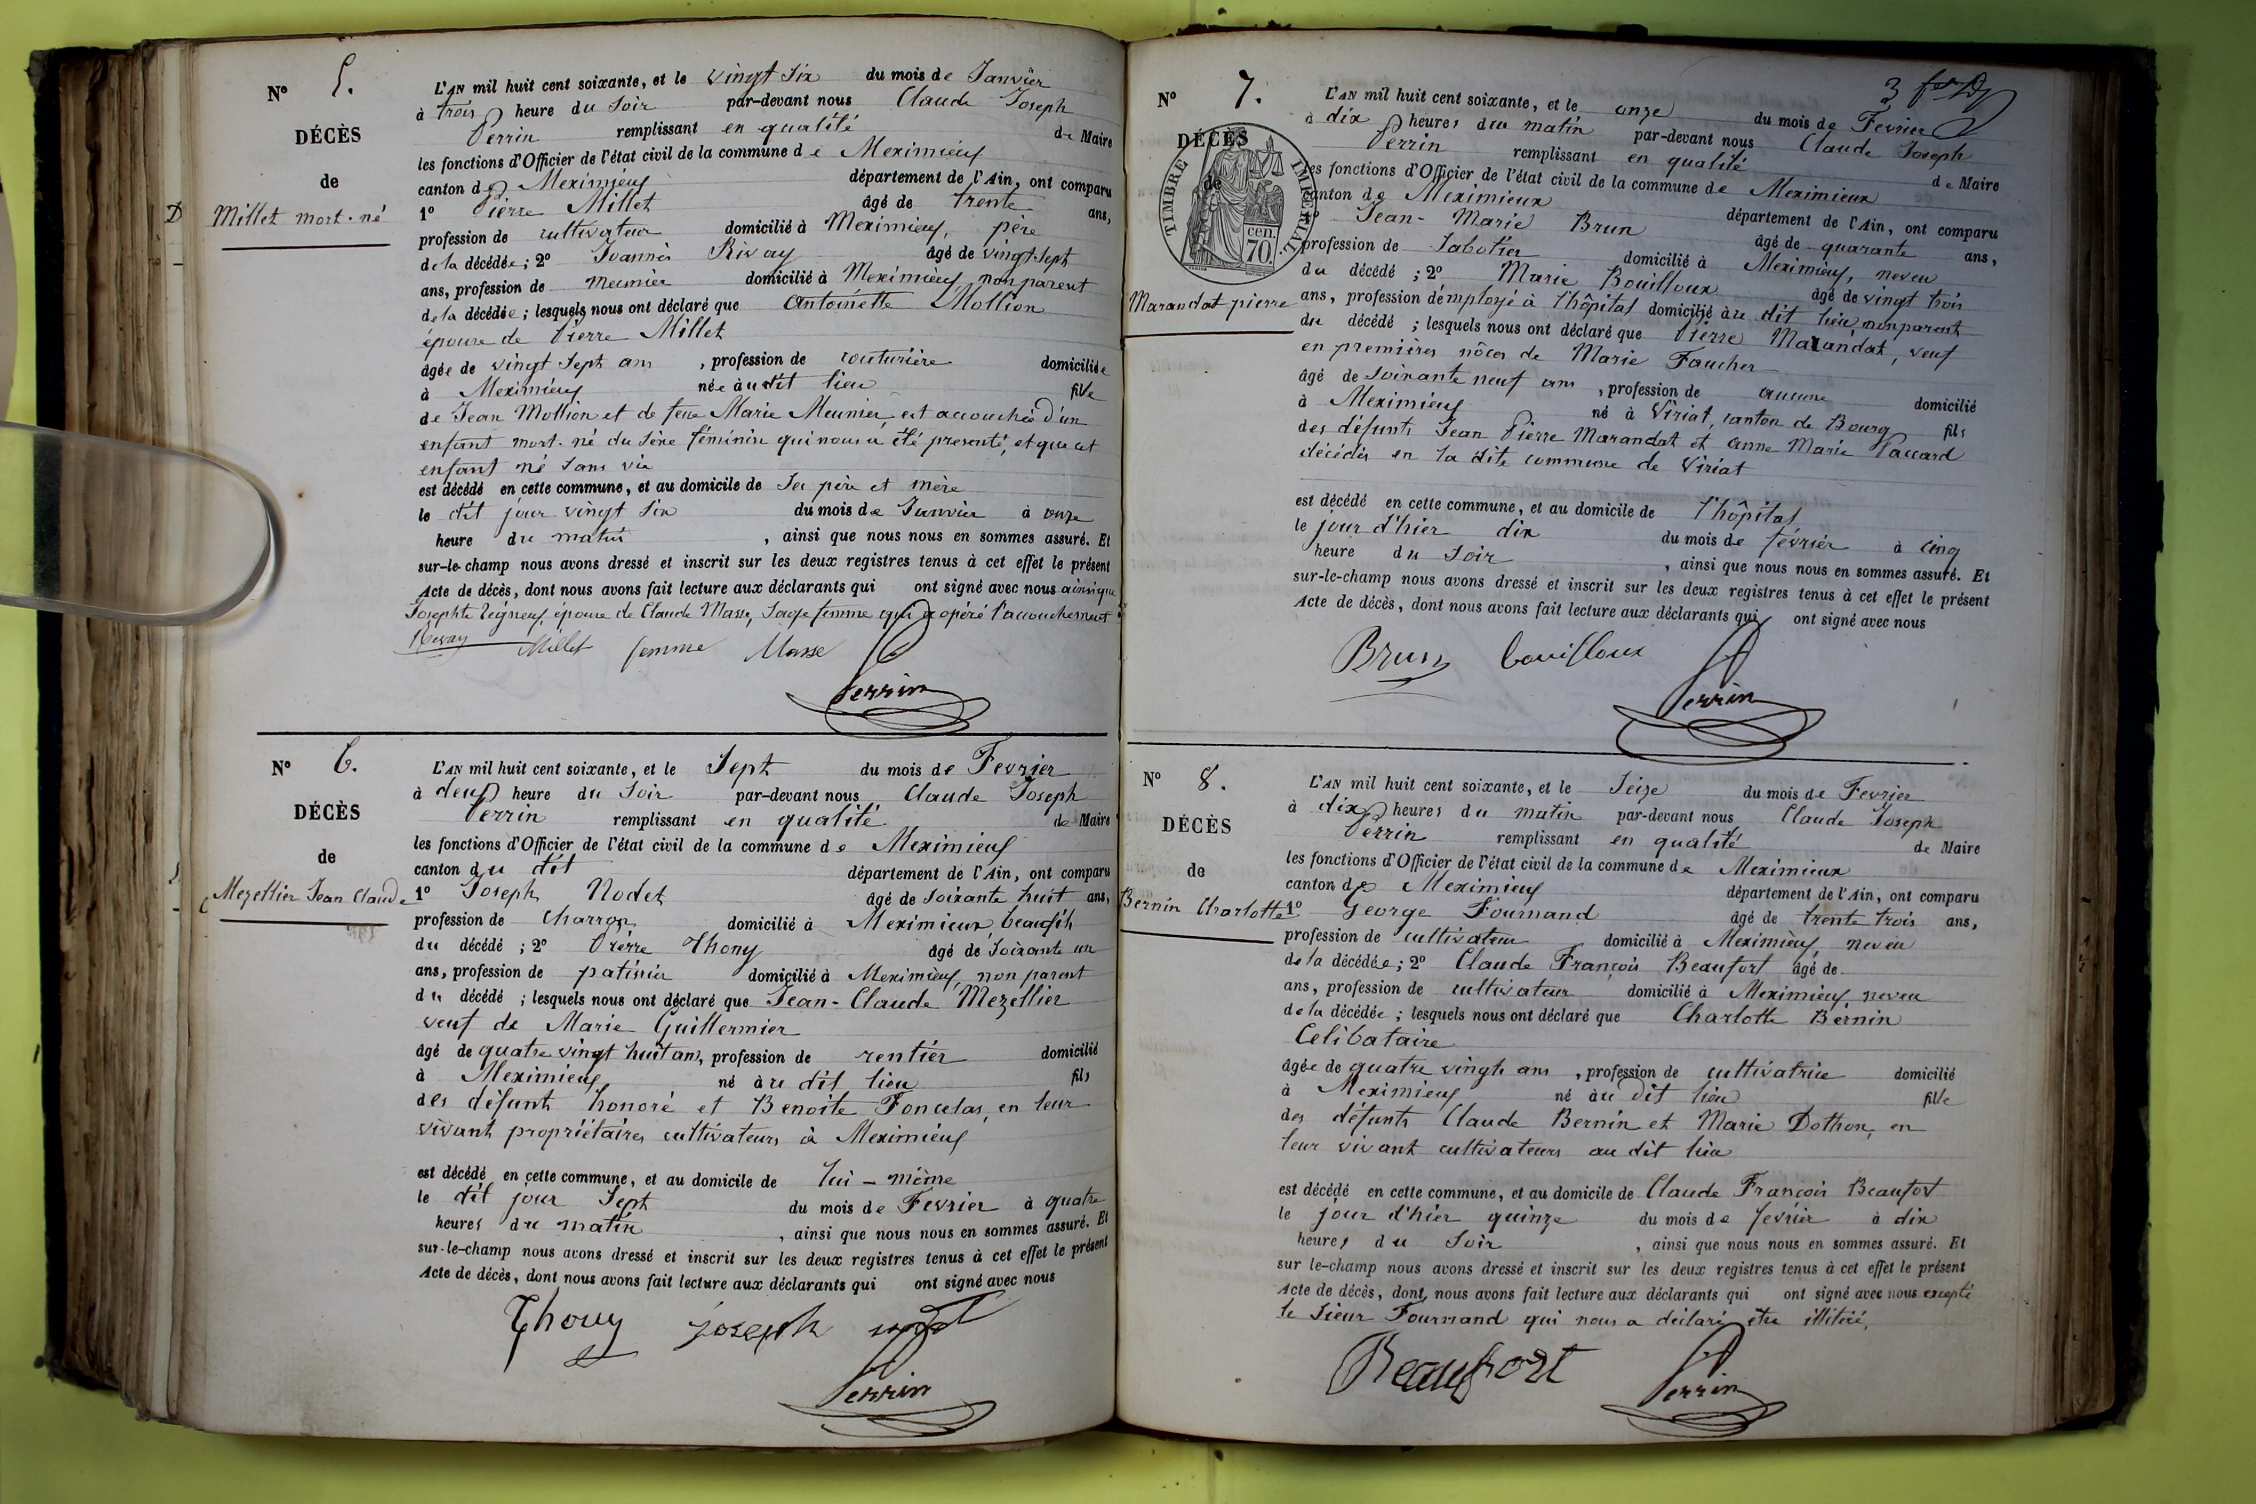 N° 5.
DÉCÈS
de
Millet mort-né
L'AN mil huit cent soixante, et le vingt six du mois de Janvier
à trois heure du soir par-devant nous Claude Joseph
Perrin remplissant en qualité de Maire
les fonctions d'Officier de l'état civil de la commune de Meximieux
canton de Meximieux département de l'Ain, ont comparu
1° Pierre Millet âgé de trente ans,
profession de cultivateur domicilié à Meximieux, père
de la décédée; 2° Joannès Rivay âgé de vingt-sept
ans, profession de meunier domicilié à Meximieux, non parent
de la décédée; lesquels nous ont déclaré que Antoinette Mollion
épouse de Pierre Millet
âgée de vingt sept ans, profession de couturière domiciliée
à Meximieux née au dit lieu fille
de Jean Mollion et de feue Marie Meunier, est accouchée d'un
enfant mort-né du sexe féminin qui nous a été presenté, et que cet
enfant né sans vie
est décédé en cette commune, et au domicile de ses père et mère
le dit jour vingt six du mois de Janvier à onze
heure du matin, ainsi que nous nous en sommes assuré. Et
sur-le-champ nous avons dressé et inscrit sur les deux registres tenus à cet effet le présent
Acte de décès, dont nous avons fait lecture aux déclarants qui ont signé avec nous ainsi que
Josephte épouse de Claude Masse, Sage femme qui a opéré l'accouchement
Rivay Millet femme Masse
Perrin
N° 6.
DÉCÈS
de
Mezellier Jean Claude
L'AN mil huit cent soixante, et le Sept du mois de Fevrier
à deux heure du soir par-devant nous Claude Joseph
Perrin remplissant en qualité de Maire
les fonctions d'Officier de l'état civil de la commune de Meximieux
canton du dit département de l'Ain, ont comparu
1° Joseph Nodet âgé de soixante huit ans,
profession de charron domicilié à Meximieux, beaufils
du décédé; 2° Pierre Thouy âgé de soixante un
ans, profession de patissier domicilié à Meximieux, non parent
du décédé; lesquels nous ont déclaré que Jean-Claude Mezellier
veuf de Marie Guillermier
âgé de quatre vingt huit ans, profession de rentier domicilié
à Meximieux né au dit lieu fils
des défunts honoré et Benoite Foncelas, en leur
vivant propriétaires cultivateurs à Meximieux
est décédé en cette commune, et au domicile de lui-même
le dit jour Sept du mois de Fevrier à quatre
heures du matin, ainsi que nous nous en sommes assuré. Et
sur-le-champ nous avons dressé et inscrit sur les deux registres tenus à cet effet le présent
Acte de décès, dont nous avons fait lecture aux déclarants qui ont signé avec nous
Thouy joseph nodet
Perrin
3
N° 7.
DÉCÈS
de
TIMBRE IMPERIAL
cen. 70.
Marandat pierre
L'AN mil huit cent soixante, et le onze du mois de Fevrier
à dix heures du matin par-devant nous Claude Joseph
Perrin remplissant en qualité de Maire
les fonctions d'Officier de l'état civil de la commune de Meximieux
canton de Meximieux département de l'Ain, ont comparu
1° Jean-Marie Brun âgé de quarante ans,
profession de Sabotier domicilié à Meximieux, neveu
du décédé; 2° Marie Bouilloux âgé de vingt trois
ans, profession d'employé à l'hôpital domicilié au dit lieu, non parent
du décédé; lesquels nous ont déclaré que Pierre Marandat, veuf
en premières nôces de Marie Faucher
âgé de soixante neuf ans, profession de aucune domicilié
à Meximieux né à Viriat, canton de Bourg fils
des défunts Jean Pierre Marandat et Anne Marie Paccard
décédés en la dite commune de Viriat
est décédé en cette commune, et au domicile de l'hôpital
le jour d'hier dix du mois de février à cinq
heure du soir, ainsi que nous nous en sommes assuré. Et
sur-le-champ nous avons dressé et inscrit sur les deux registres tenus à cet effet le présent
Acte de décès, dont nous avons fait lecture aux déclarants qui ont signé avec nous
Brun bouilloux
Perrin
N° 8.
DÉCÈS
de
Bernin Charlotte
L'AN mil huit cent soixante, et le Seize du mois de Fevrier
à dix heures du matin par-devant nous Claude Joseph
Perrin remplissant en qualité de Maire
les fonctions d'Officier de l'état civil de la commune de Meximieux
canton de Meximieux département de l'Ain, ont comparu
1° George Fournand âgé de trente trois ans,
profession de cultivateur domicilié à Meximieux, neveu
de la décédée; 2° Claude François Beaufort âgé de
ans, profession de cultivateur domicilié à Meximieux, neveu
de la décédée; lesquels nous ont déclaré que Charlotte Bernin
Celibataire
âgée de quatre vingts ans, profession de cultivatrice domicilié
à Meximieux né au dit lieu fille
des défunts Claude Bernin et Marie Dothon, en
leur vivant cultivateurs au dit lieu
est décédé en cette commune, et au domicile de Claude François Beaufort
le jour d'hier quinze du mois de fevrier à dix
heures du soir, ainsi que nous nous en sommes assuré. Et
sur-le-champ nous avons dressé et inscrit sur les deux registres tenus à cet effet le présent
Acte de décès, dont nous avons fait lecture aux déclarants qui ont signé avec nous excepté
le sieur Fournand qui nous a déclaré être illitéré.
Beaufort
Perrin